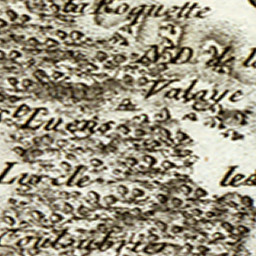 la Roquette
N.D. de l
Valaye
Luens
Luc de
les
Coulsubrier